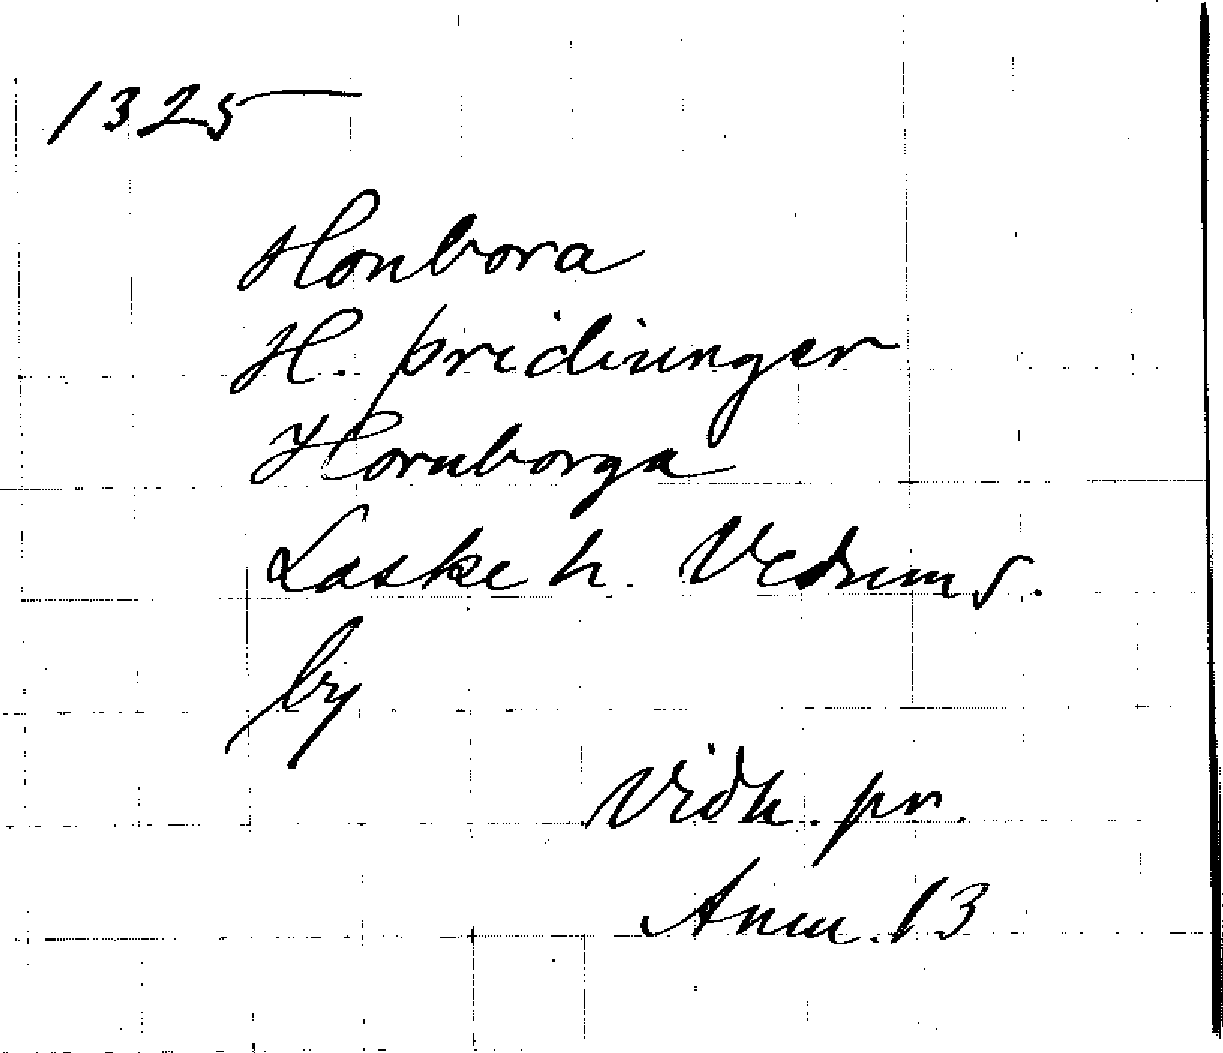 1325
Honbora
H. þridiunger
Hornborga
Laske h. Vedums s.
by
Vidh. pr.
Anm. 13